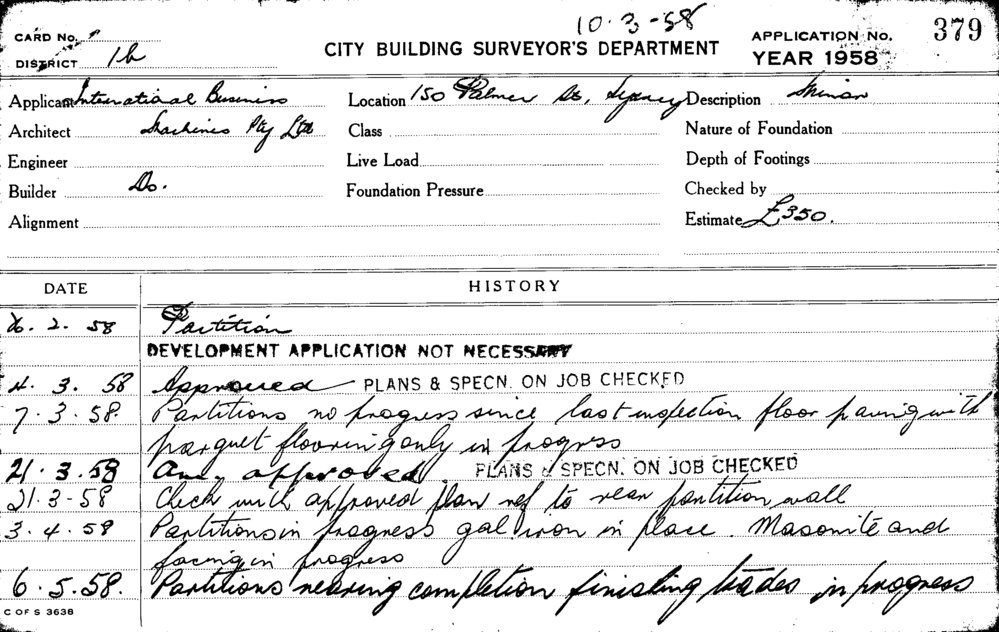 10.3-58
CARD No.
CITY BUILDING SURVEYOR'S DEPARTMENT
APPLICATION No. 379
DISTRICT 1b
YEAR 1958
Applicant International Business Location 150 Palmer St, Sydney Description Minor
Architect Machines Pty Ltd Class Nature of Foundation
Engineer Live Load Depth of Footings
Builder Do. Foundation Pressure Checked by
Alignment Estimate £350.
DATE HISTORY
26. 2. 58 Partition
DEVELOPMENT APPLICATION NOT NECESSARY
4. 3. 58 Approved PLANS & SPECN. ON JOB CHECKED
7.3.58. Partitions no progress since last inspection floor paving with
parquet flooring only in progress
21.3.58 approved PLANS & SPECN. ON JOB CHECKED
21.3-58 Check with approved plan ref to rear partition wall
3.4.58 Partitions in progress gal iron in place. Masonite and
facing in progress
6.5.58. Partitions nearing completion finishing trades in progress
C OF S 3638